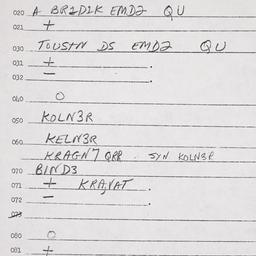 020 A BR1D1K EMD2 QU
021 +
030 TOUSIN DS EMD2 QU
031 +
032 —
040 O
050 KOLN3R
060 KELN3R
KRAGN7 QRR. SYN KOLN3R
070 BIND3
071 + KRAVAT
072 —
073
080 O
081 +